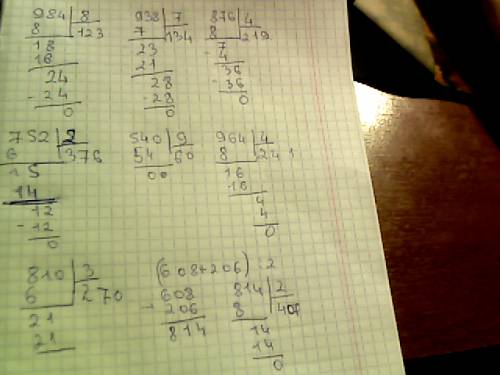 984 8 938 7 876 4
8 123 7 134 8 219
18 23 7
16 21 - 4
24 28 36
- 24 - 28 - 36
0 0 0
752 2 540 9 964 4
6 376 54 60 8 241
15 00 16
14 16
12 4
- 12 4
0 0
810 3 (608+206) : 2
6 270 608 814 2
21 206 8 407
21 814 14
14
0